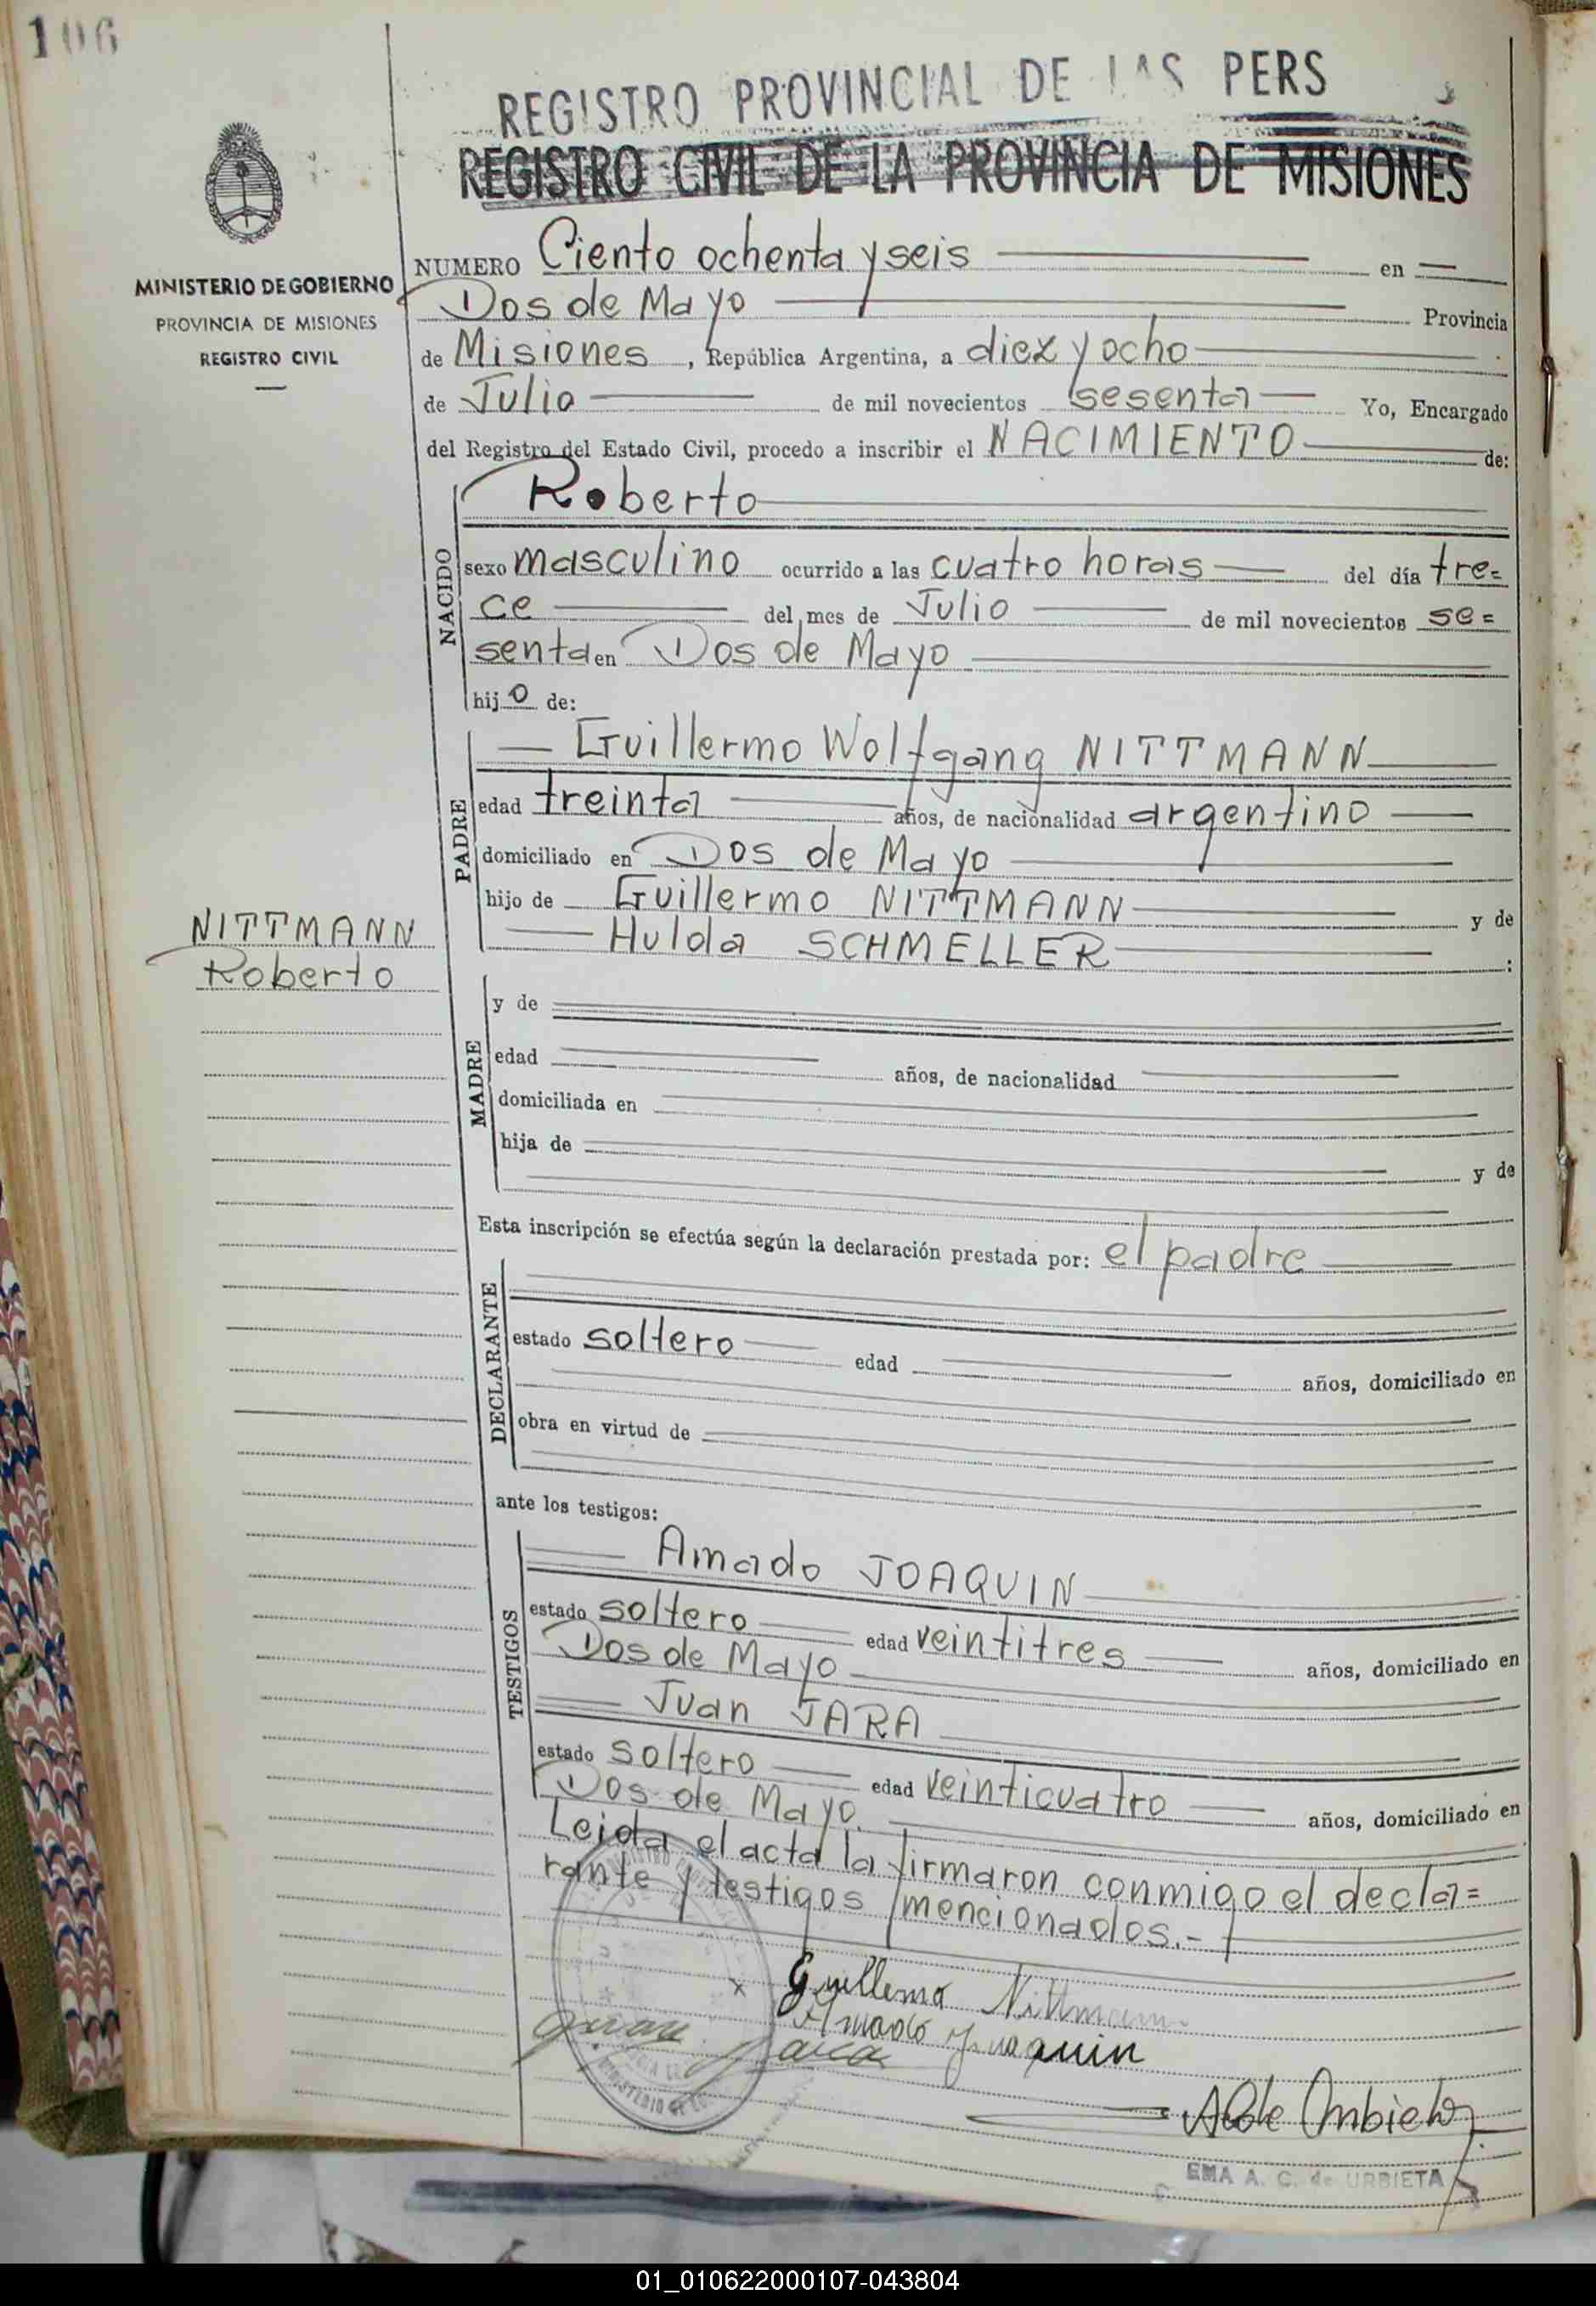 106
REGISTRO PROVINCIAL DE LAS PERS
REGISTRO CIVIL DE LA PROVINCIA DE MISIONES
MINISTERIO DE GOBIERNO
PROVINCIA DE MISIONES
REGISTRO CIVIL
NUMERO Ciento ochenta y seis en
Dos de Mayo Provincia
de Misiones, República Argentina, a diez y ocho
de Julio de mil novecientos sesenta Yo, Encargado
del Registro del Estado Civil, procedo a inscribir el NACIMIENTO de:
NACIDO
Roberto
sexo masculino ocurrido a las cuatro horas del día tre=
ce del mes de Julio de mil novecientos se=
senta en Dos de Mayo
hijo de:
PADRE
Guillermo Wolfgang NITTMANN
edad treinta años, de nacionalidad argentino
domiciliado en Dos de Mayo
hijo de Guillermo NITTMANN y de
Hulda SCHMELLER :
NITTMANN
Roberto
MADRE
y de
edad años, de nacionalidad
domiciliada en
hija de
y de
Esta inscripción se efectúa según la declaración prestada por: el padre
DECLARANTE
estado soltero edad años, domiciliado en
obra en virtud de
ante los testigos:
TESTIGOS
Amado JOAQUIN
estado soltero edad veintitres años, domiciliado en
Dos de Mayo
Juan JARA
estado soltero edad veinticuatro años, domiciliado en
Dos de Mayo.
Leida el acta la firmaron conmigo el decla=
rante y testigos mencionados.-
x Guillermo Nittmann
Amado Joaquin
Juan Jara
EMA A. C. de URBIETA
01_010622000107-043804